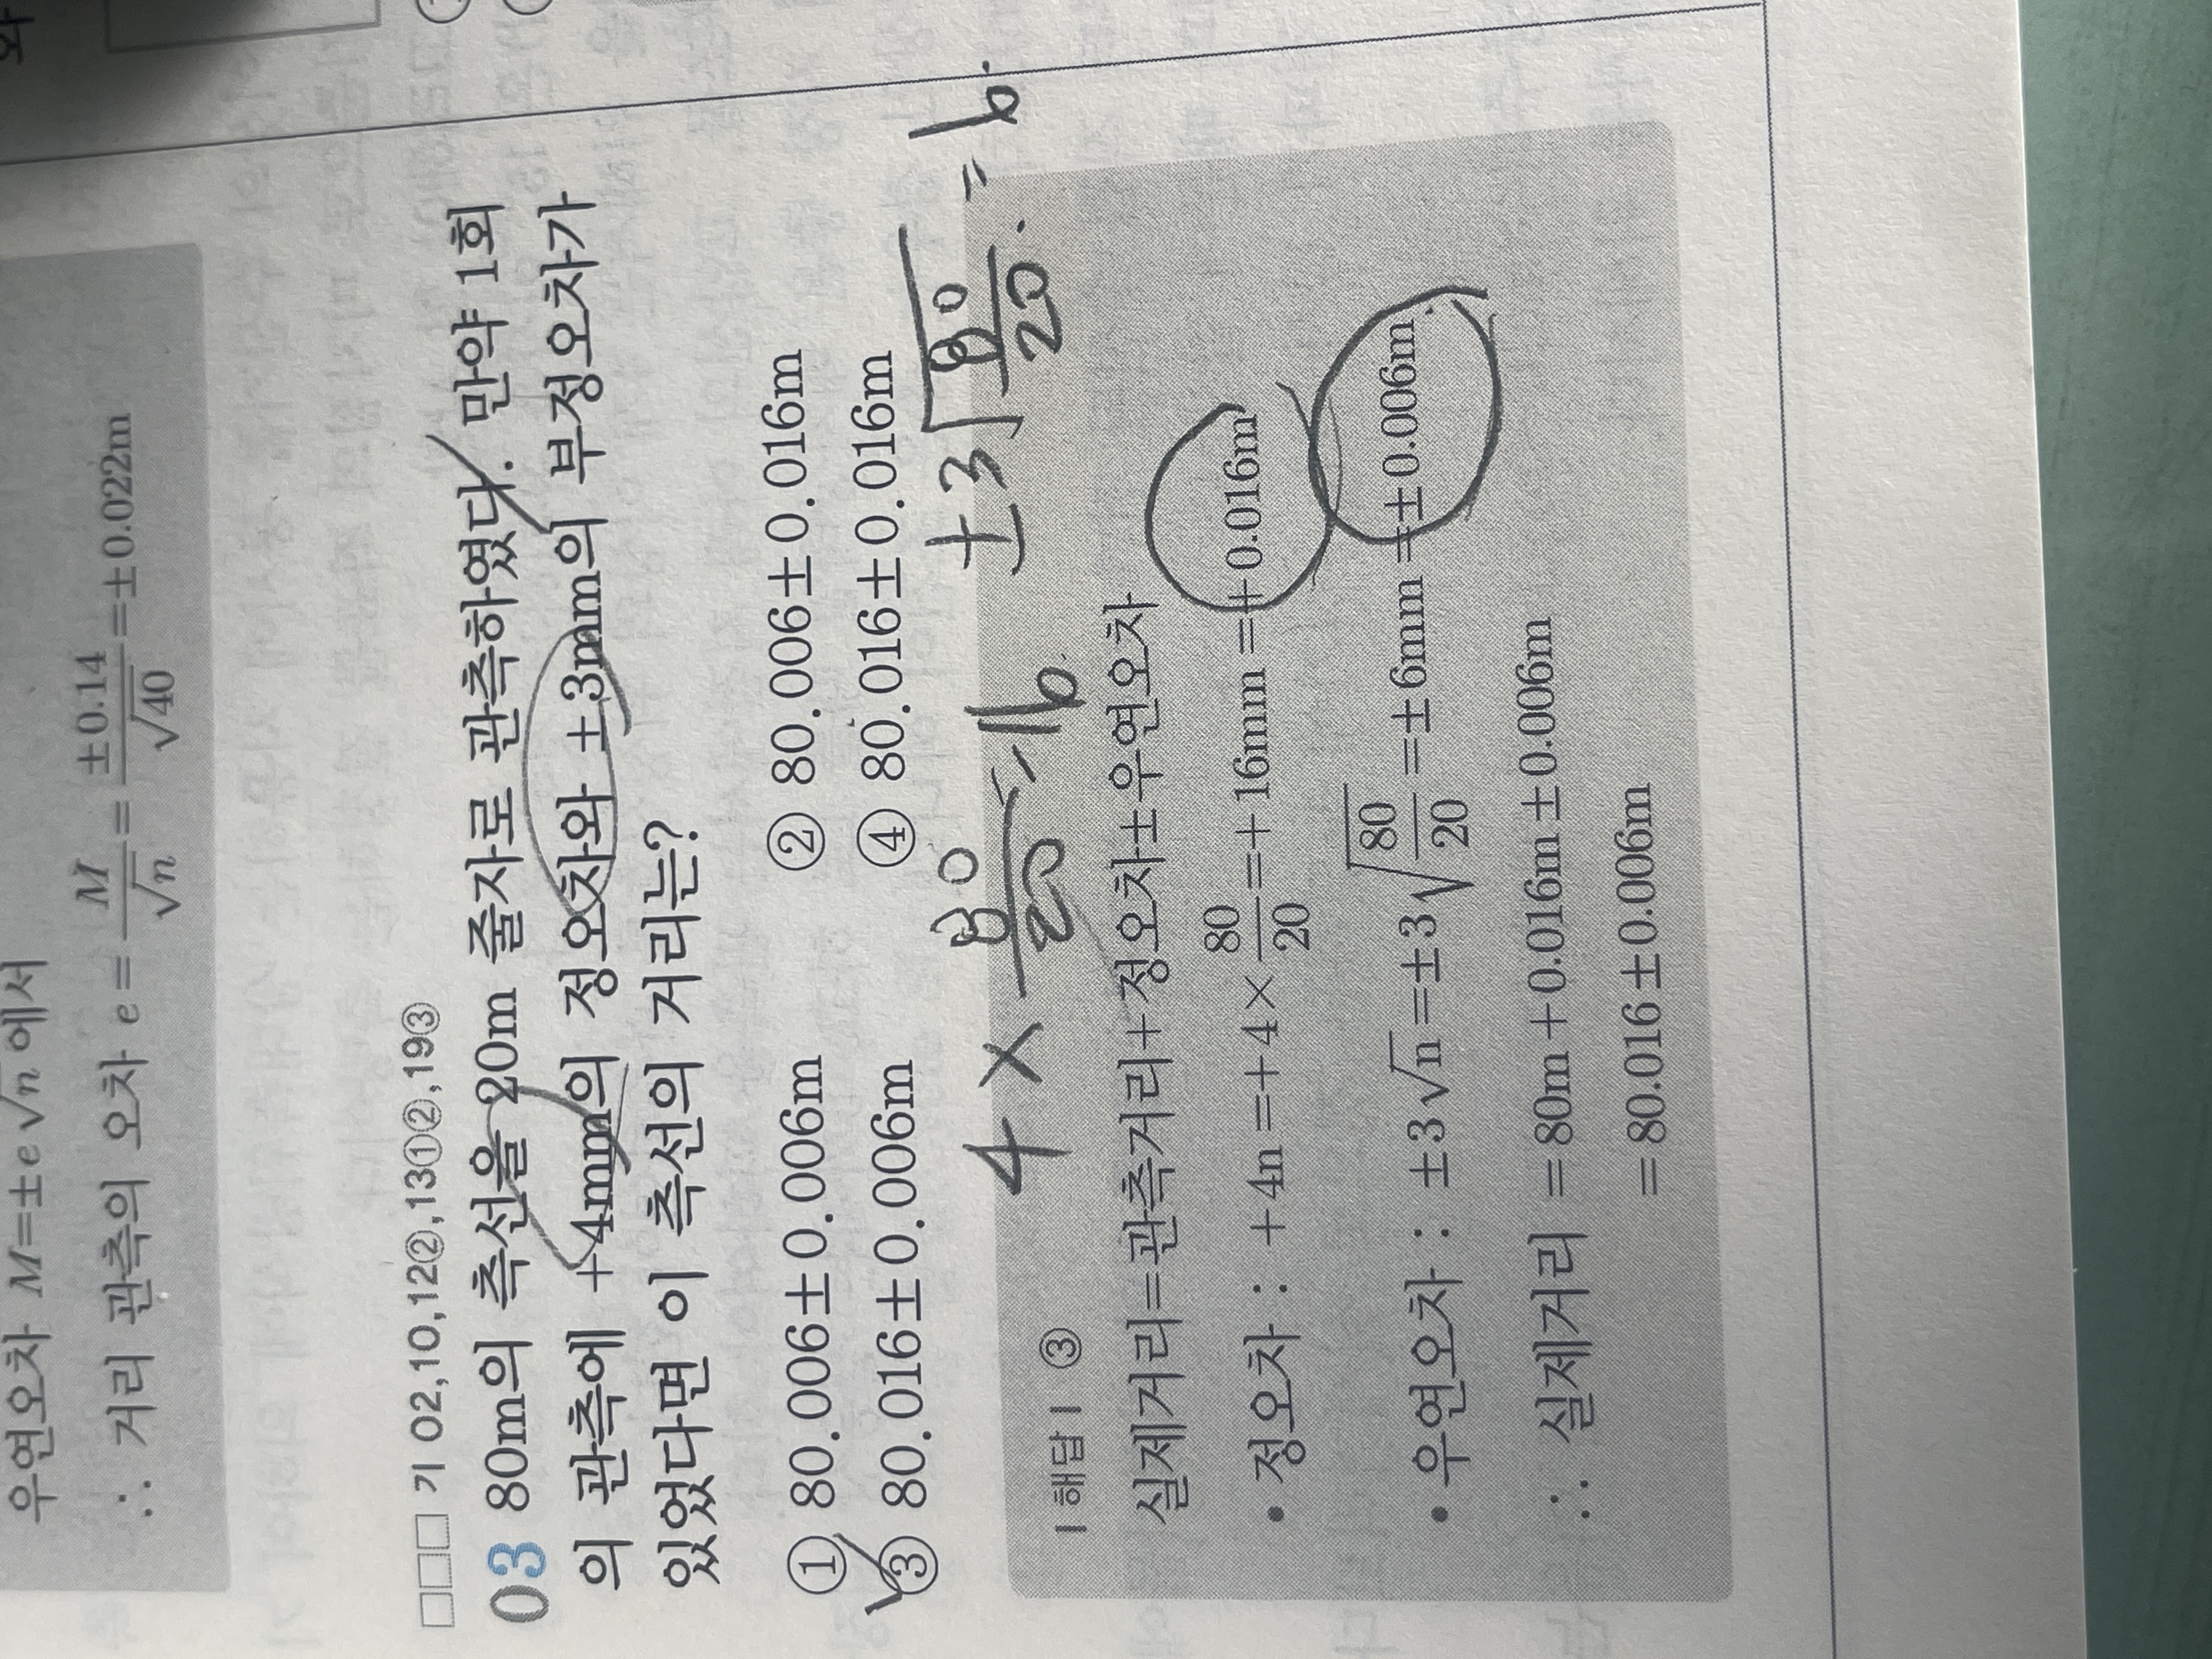 우연오차 M=±e√n 에서
∴ 거리 관측의 오차 e = M/√n = ±0.14/√40 = ±0.022m
□□□ 기 02,10,12②,13①②,19③
03 80m의 측선을 20m 줄자로 관측하였다. 만약 1회
의 관측에 +4mm의 정오차와 ±3mm의 부정오차가
있었다면 이 측선의 거리는?
① 80.006±0.006m ② 80.006±0.016m
③ 80.016±0.006m ④ 80.016±0.016m
4 × 80/20 = 16 ±3√80/20 = 6
| 해답 | ③
실제거리=관측거리+정오차±우연오차
• 정오차 : +4n=+4×80/20=+16mm=+0.016m
• 우연오차 : ±3√n=±3√80/20=±6mm=±0.006m
∴ 실제거리 =80m+0.016m±0.006m
=80.016±0.006m